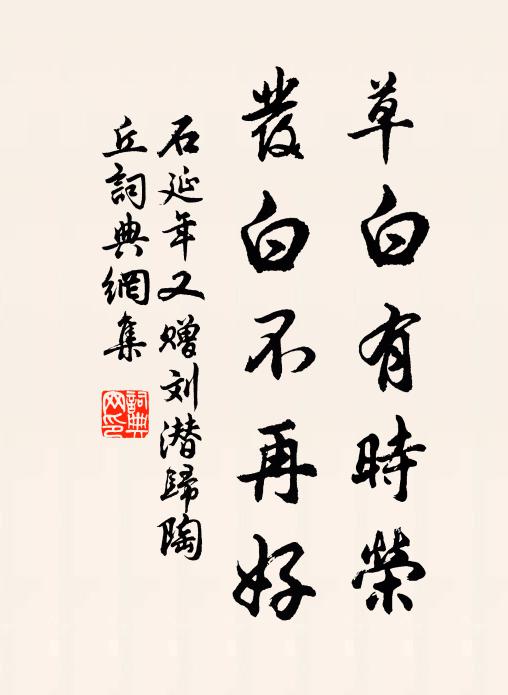 草白有時榮
發白不再好
石延年又赠刘潜歸陶
丘詞典網集
詞典
网印